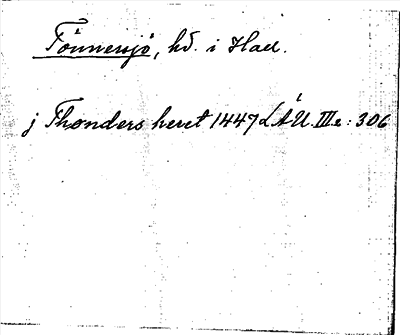 Tönnersjö, hd. i Hall.
j Thonders heret 1447 LÅU. III2: 306